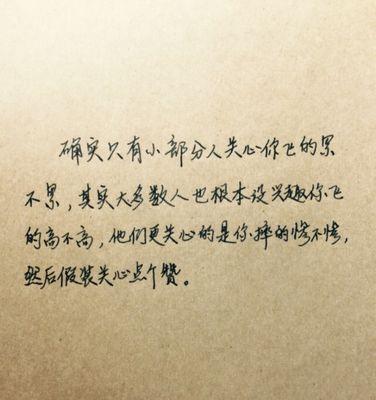 确实只有小部分人关心你飞的累
不累，其实大多数人也根本没兴趣你飞
的高不高，他们更关心的是你摔的惨不惨，
然后假装关心点个赞。